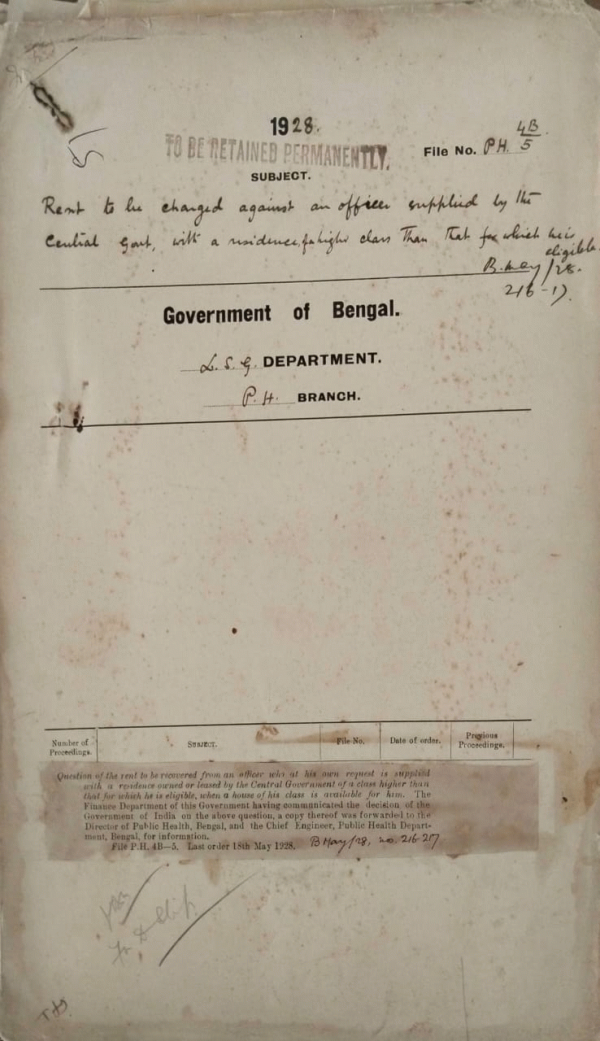 1928.
TO BE RETAINED PERMANENTLY.
File No. P.H. 4B/5
SUBJECT.
Rent to be charged against an officer supplied by the
Central Govt, with a residence, of a higher class than that for which he is
eligible.
B. May/28.
216-17.
Government of Bengal.
L. S. G. DEPARTMENT.
P. H. BRANCH.
Number of Proceedings. SUBJECT. File No. Date of order. Previous Proceedings.
Question of the rent to be recovered from an officer who at his own request is supplied
with a residence owned or leased by the Central Government of a class higher than
that for which he is eligible, when a house of his class is available for him. The
Finance Department of this Government having communicated the decision of the
Government of India on the above question, a copy thereof was forwarded to the
Director of Public Health, Bengal, and the Chief Engineer, Public Health Depart-
ment, Bengal, for information.
File P.H. 4B—5, Last order 18th May 1928. B May/28, no. 216-217